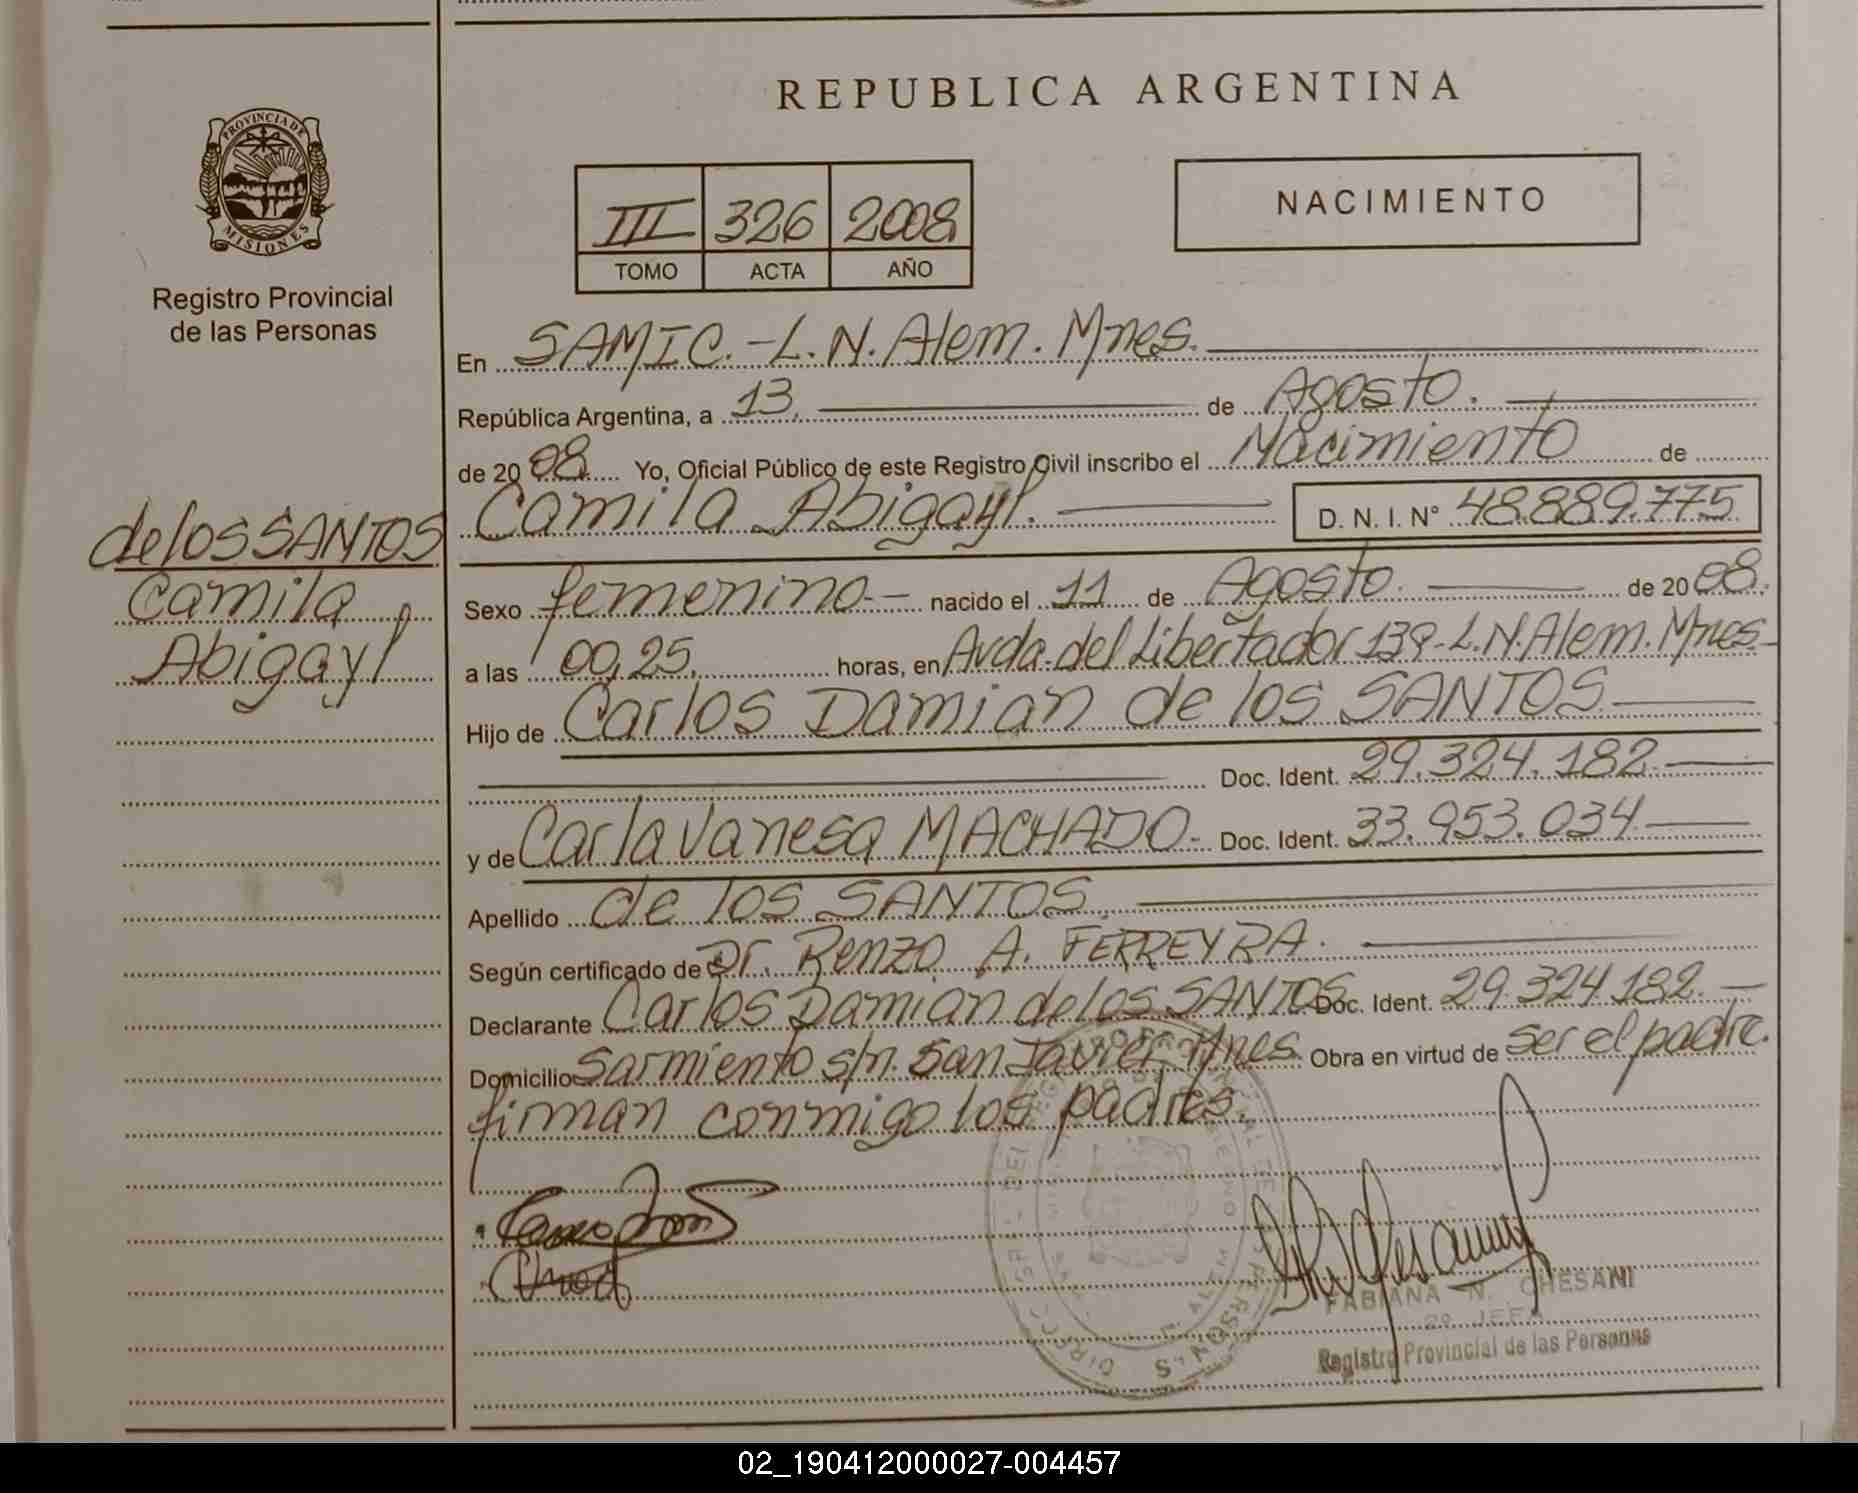 REPUBLICA ARGENTINA
PROVINCIA DE
MISIONES
Registro Provincial
de las Personas
III 326 2008
TOMO ACTA AÑO
NACIMIENTO
En SAMIC.-L.N.Alem.Mnes.
República Argentina, a 13, de Agosto.
de 2008. Yo, Oficial Público de este Registro Civil inscribo el Nacimiento de
Camila Abigayl. D. N. I. N° 48.889.775
de los SANTOS
Camila
Abigayl
Sexo femenino.- nacido el 11 de Agosto. de 2008.
a las 00,25, horas, en Avda.del Libertador 139-L.N.Alem.Mnes.-
Hijo de Carlos Damian de los SANTOS
Doc. Ident. 29.324.182.
y de Carla Vanesa MACHADO. Doc. Ident. 33.953.034
Apellido de los SANTOS.
Según certificado de Dr. Renzo A. FERREYRA.
Declarante Carlos Damian de los SANTOS Doc. Ident. 29.324.182.-
Domicilio Sarmiento s/n. San Javier Mnes. Obra en virtud de ser el padre.
firman conmigo los padres.
FABIANA N. CHESANI
2º JEFA
Registro Provincial de las Personas
02_190412000027-004457